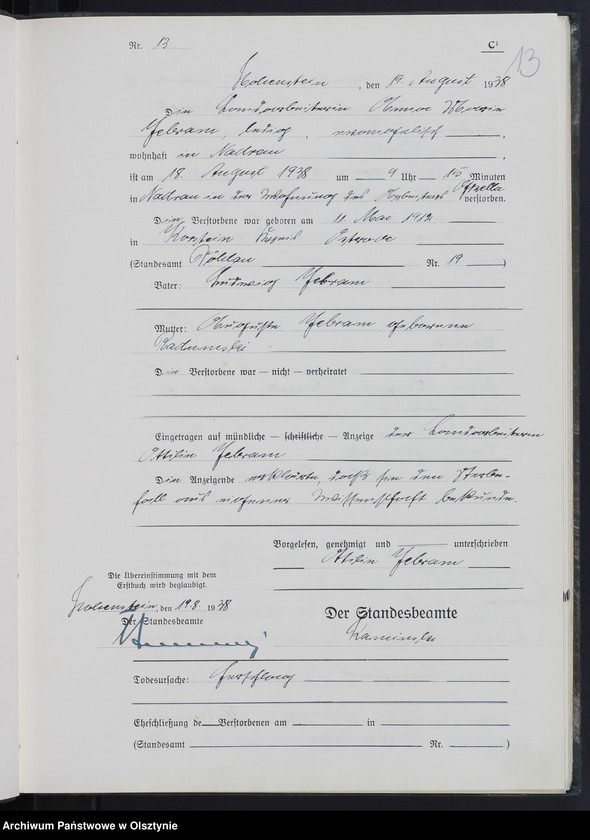 Nr. 13
C¹
13
Hohenstein, den 19. August 1938
Die Landarbeiterin Anna Marie
Jebram, ledig, evangelisch,
wohnhaft in Nadrau,
ist am 18. August 1938 um 9 Uhr 15 Minuten
in Nadrau in der Wohnung des verstorben.
Die Verstorbene war geboren am 11. Mai 1912
in Kreis Osterode
(Standesamt Döhlau Nr. 19)
Vater: Ludwig Jebram
Mutter: Auguste Jebram geborene
Die Verstorbene war — nicht — verheiratet
Eingetragen auf mündliche — schriftliche — Anzeige der Landarbeiterin
Ottilie Jebram
Die Anzeigende erklärte, daß sie den Sterbe-
fall aus eigener Wissenschaft bekunde.
Vorgelesen, genehmigt und unterschrieben
Ottilie Jebram
Die Übereinstimmung mit dem
Erstbuch wird beglaubigt.
Hohenstein, den 19.8. 1938
Der Standesbeamte
Der Standesbeamte
Kaminski
Todesursache: Herzschlag
Eheschließung de Verstorbenen am in
(Standesamt Nr. )
Archiwum Państwowe w Olsztynie